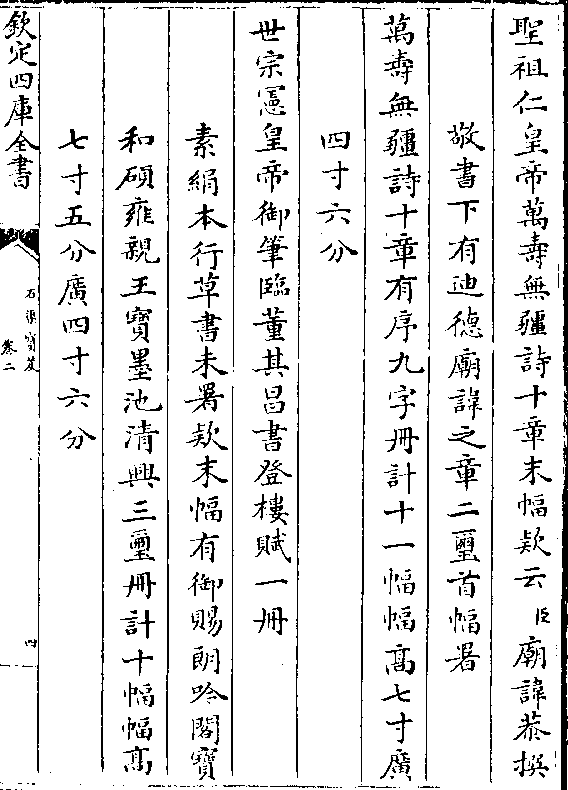 聖祖仁皇帝萬壽無疆詩十章末幅款云臣廟諱恭撰
敬書下有迪德廟諱之章二璽首幅署
萬壽無疆詩十章有序九字册計十一幅幅高七寸廣
四寸六分
世宗憲皇帝御筆臨董其昌書登樓賦一册
素絹本行草書未署款末幅有御賜朗吟閣寶
和碩雍親王寶墨池清興三璽册計十幅幅高
七寸五分廣四寸六分
欽定四庫全書
石渠寶笈
卷二
四